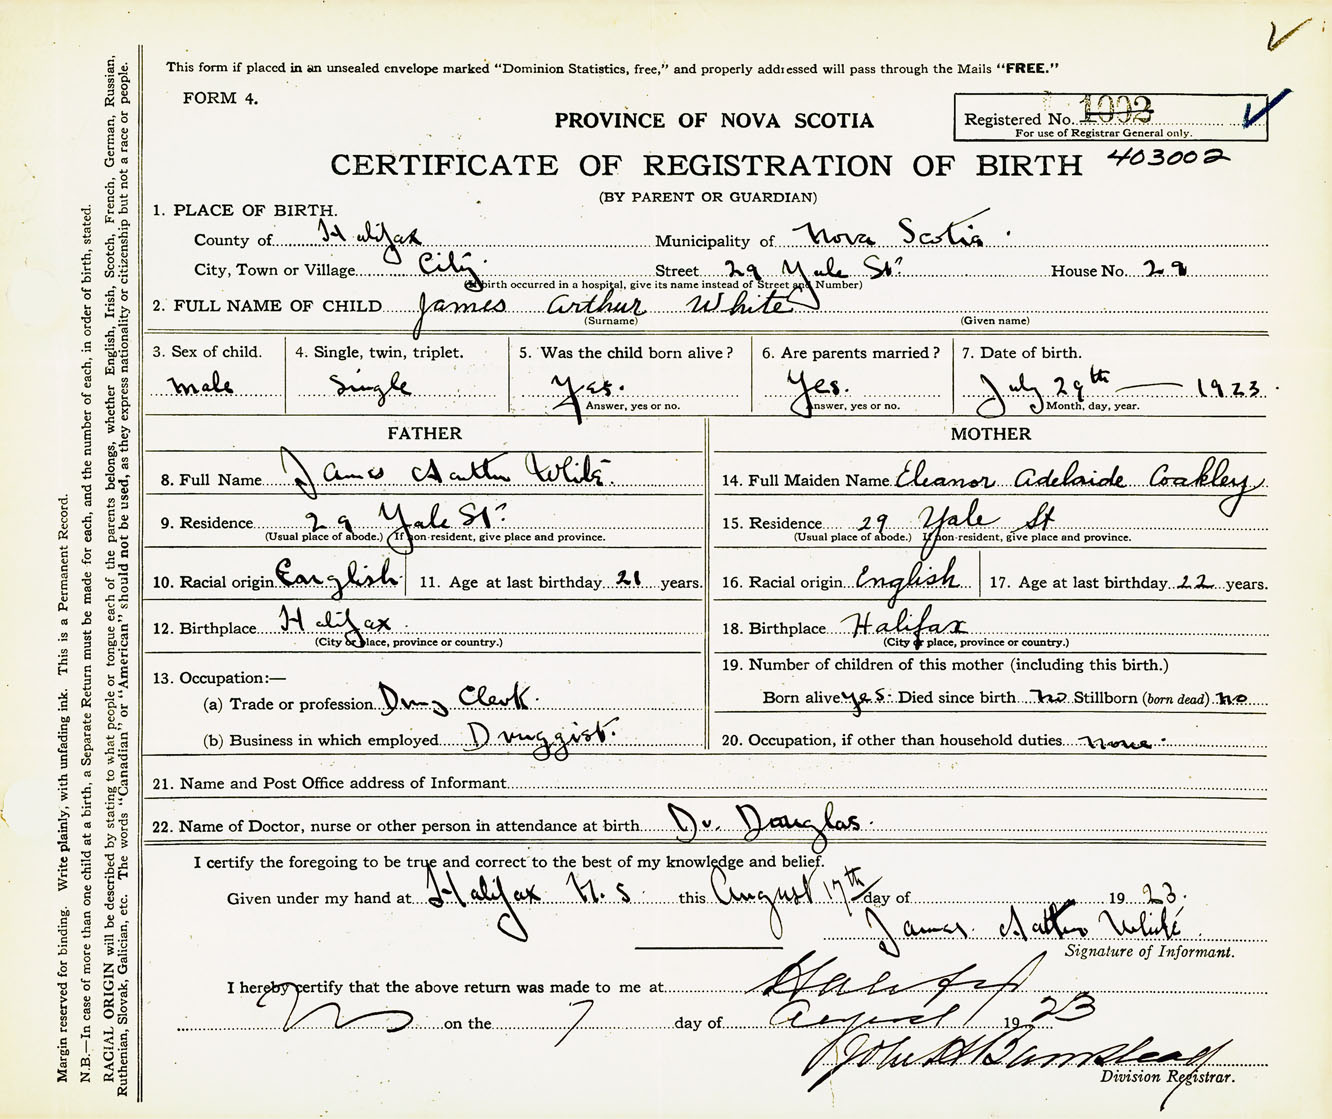 This form if placed in an unsealed envelope marked "Dominion Statistics, free," and properly addressed will pass through the Mails "FREE."
FORM 4.
PROVINCE OF NOVA SCOTIA
Registered No. 1002
For use of Registrar General only.
CERTIFICATE OF REGISTRATION OF BIRTH 403002
(BY PARENT OR GUARDIAN)
1. PLACE OF BIRTH.
County of Halifax Municipality of Nova Scotia
City, Town or Village City Street 29 Yale St. House No. 29
(If birth occurred in a hospital, give its name instead of Street and Number)
2. FULL NAME OF CHILD James Arthur White
(Surname) (Given name)
3. Sex of child. 4. Single, twin, triplet. 5. Was the child born alive? 6. Are parents married? 7. Date of birth.
male Single Yes. Yes. July 29th — 1923
Answer, yes or no. Answer, yes or no. Month, day, year.
FATHER MOTHER
8. Full Name James Arthur White 14. Full Maiden Name Eleanor Adelaide Coakley
9. Residence 29 Yale St. 15. Residence 29 Yale St
(Usual place of abode.) If non-resident, give place and province. (Usual place of abode.) If non-resident, give place and province.
10. Racial origin English 11. Age at last birthday 21 years. 16. Racial origin English 17. Age at last birthday 22 years.
12. Birthplace Halifax 18. Birthplace Halifax
(City or place, province or country.) (City or place, province or country.)
13. Occupation:— 19. Number of children of this mother (including this birth.)
(a) Trade or profession Drug Clerk. Born alive yes. Died since birth no Stillborn (born dead) no
(b) Business in which employed Druggist. 20. Occupation, if other than household duties none.
21. Name and Post Office address of Informant
22. Name of Doctor, nurse or other person in attendance at birth Dr. Douglas.
I certify the foregoing to be true and correct to the best of my knowledge and belief.
Given under my hand at Halifax N.S this August 17th day of 1923.
James Arthur White
Signature of Informant.
I hereby certify that the above return was made to me at Halifax
NS on the 7 day of August 1923
John H Barnstead
Division Registrar.
Margin reserved for binding. Write plainly, with unfading ink. This is a Permanent Record.
N.B.—In case of more than one child at a birth, a Separate Return must be made for each, and the number of each, in order of birth, stated.
RACIAL ORIGIN will be described by stating to what people or tongue each of the parents belongs, whether English, Irish, Scotch, French, German, Russian,
Ruthenian, Slovak, Galician, etc. The words "Canadian" or "American" should not be used, as they express nationality or citizenship but not a race or people.